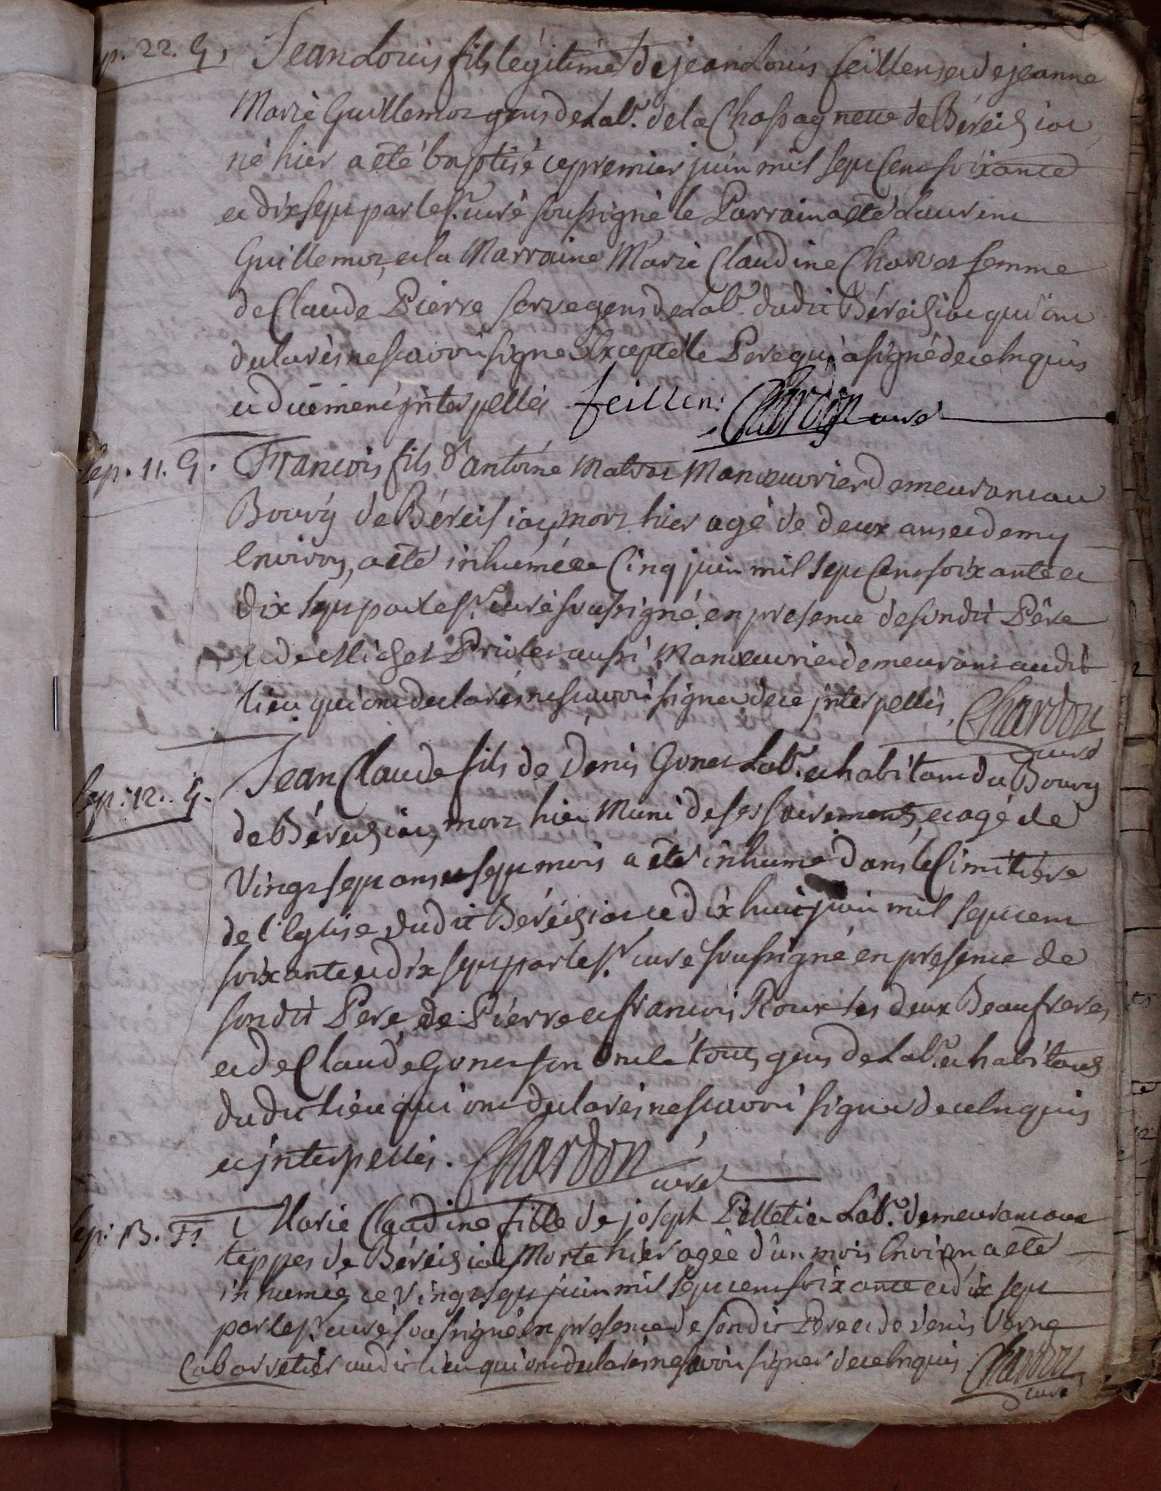 p. 22. G. Jean Louis fils légitime de jean Louis feillens et de jeanne
Marie Guillemot gens de Lab.r de la Chassagnette de Béreisiat
né hier a été baptisé ce premier juin mil sept Cent soixante
et dix sept par le S.r curé soussigné le Parrain a été Laurent
Guillemot, et la Marraine Marie Claudine Charvet femme
de Claude Pierre Serve gens de Lab.r dudit Béreisiat qui ont
declarés ne scavoir signer Excepté le Pere qui a signé de ce Enquis
et düement jnterpellés feillens Chardon curé
Sep. 11. G. Francois fils d'antoine Matrat Manœuvrier demeurant au
Bourg de Béreisiat, mort hier agé de deux ans et demy
Environ, a été inhumé ce Cinq juin mil sept Cent soixante et
dix sept par le S.r curé soussigné en presence de sondit Pére
et de Michel Privler aussi Manœuvrier demeurant audit
lieu qui ont declarés ne scavoir signer de ce jnterpellés, Chardon
curé
Sep. 12. G. Jean Claude fils de Denis Gonet Lab.r et habitant du Bourg
de Béreisiat, mort hier Muni de ses sacrements, et agé de
Vingt sept ans et sept mois a été inhumé dans le Cimitiére
de l'Eglise dudit Béréisiat ce dix huit juin mil sept cent
soixante et dix sept par le S.r curé soussigné en presence de
sondit Pere de Pierre et francois Roux ses deux Beaufreres
et de Claude Gonet son oncle tous gens de Lab.r et habitants
dudit Lieu qui ont declarés ne scavoir signer de ce Enquis
et jnterpellés. Chardon curé
Sep. 13. F. Marie Claudine fille de joseph Pelletier Lab.r demeurant aux
teppes de Béréisiat Morte hier agée d'un mois Environ a été
inhumée ce Vingt sept juin mil sept cent soixante et dix sept
par le S.r curé soussigné en presence de sondit Pere et de Denis Verne
Cabarretier audit lieu qui ont declarés ne savoir signer de ce Enquis Chardon
curé